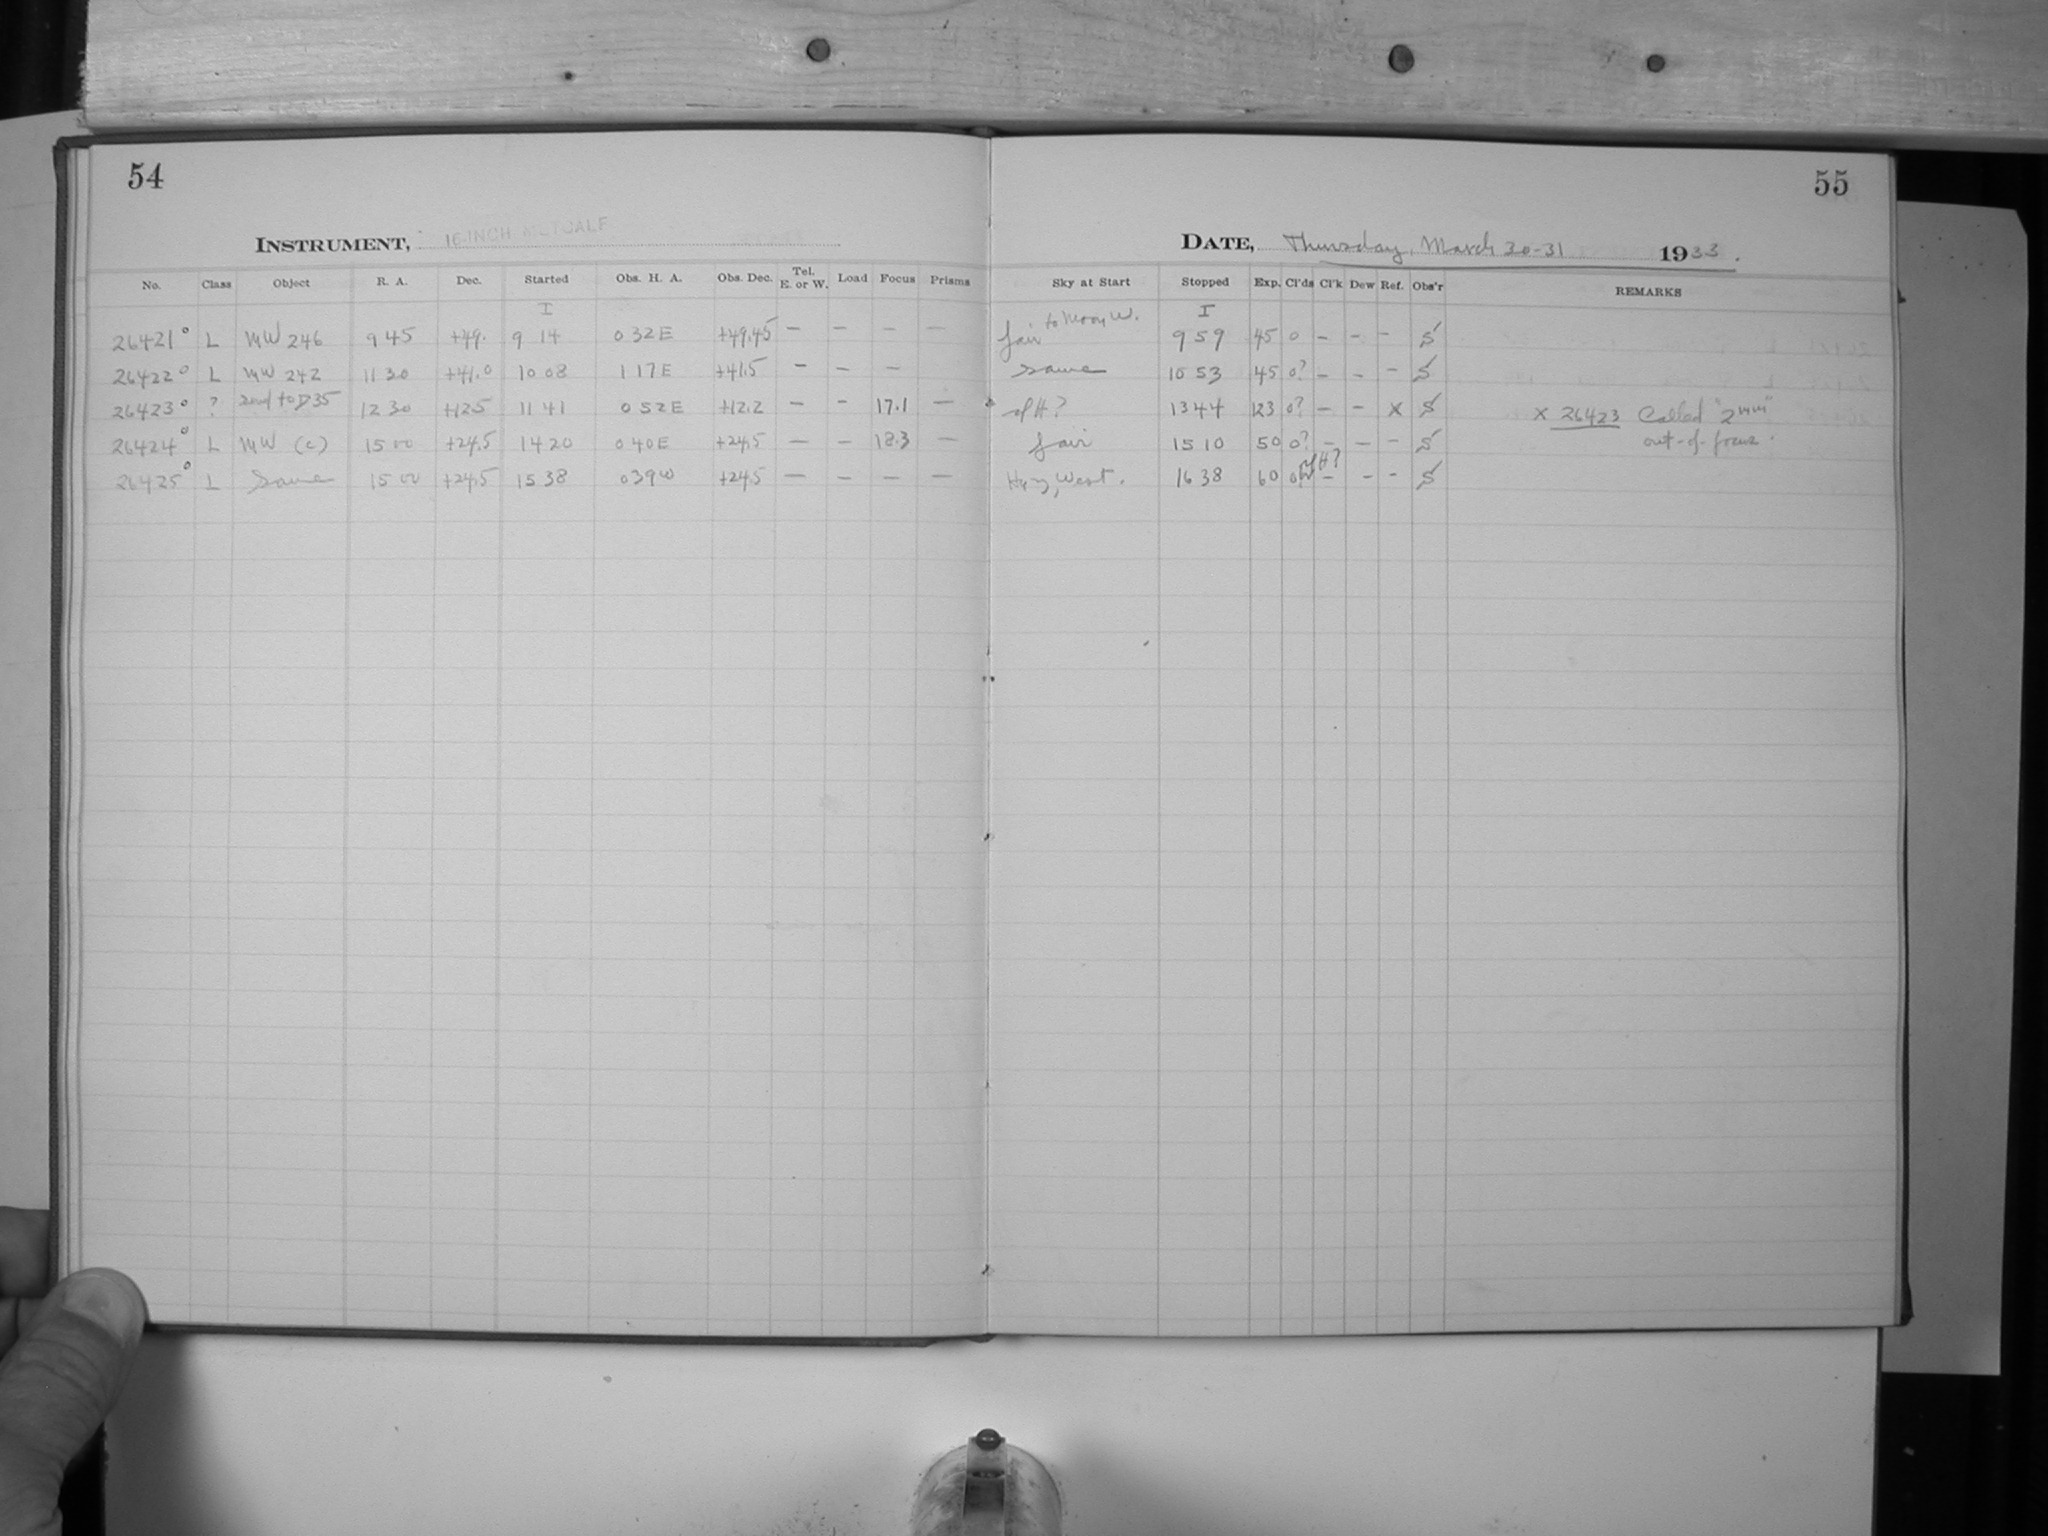 54
INSTRUMENT, 16 INCH METCALF
No. Class Object R. A. Dec. Started Obs. H. A. Obs. Dec. Tel. E. or W. Load Focus Prisms
I
26421° L MW 246 9 45 +49. 9 14 0 32 E +49.45 — — — —
26422° L MW 242 11 30 +41.0 10 08 1 17 E +41.5 — — —
26423° ? 2nd to D35 12 30 +12.5 11 41 0 52 E +12.2 — — 17.1 —
26424° L MW (c) 15 00 +24.5 14 20 0 40 E +24.5 — — 18.3 —
26425° L Same 15 00 +24.5 15 38 0 39 W +24.5 — — — —
55
DATE, Thursday, March 30-31 1933.
Sky at Start Stopped Exp. Cl'ds Cl'k Dew Ref. Obs'r REMARKS
I
fair to Moon W. 9 59 45 0 — — — S
Same 10 53 45 0? — — — S
H? 13 44 123 0? — — X S X 26423 Called "2mm"
out-of-focus.
fair 15 10 50 0? — — — S
Hazy, West. 16 38 60 0 H? — — — S